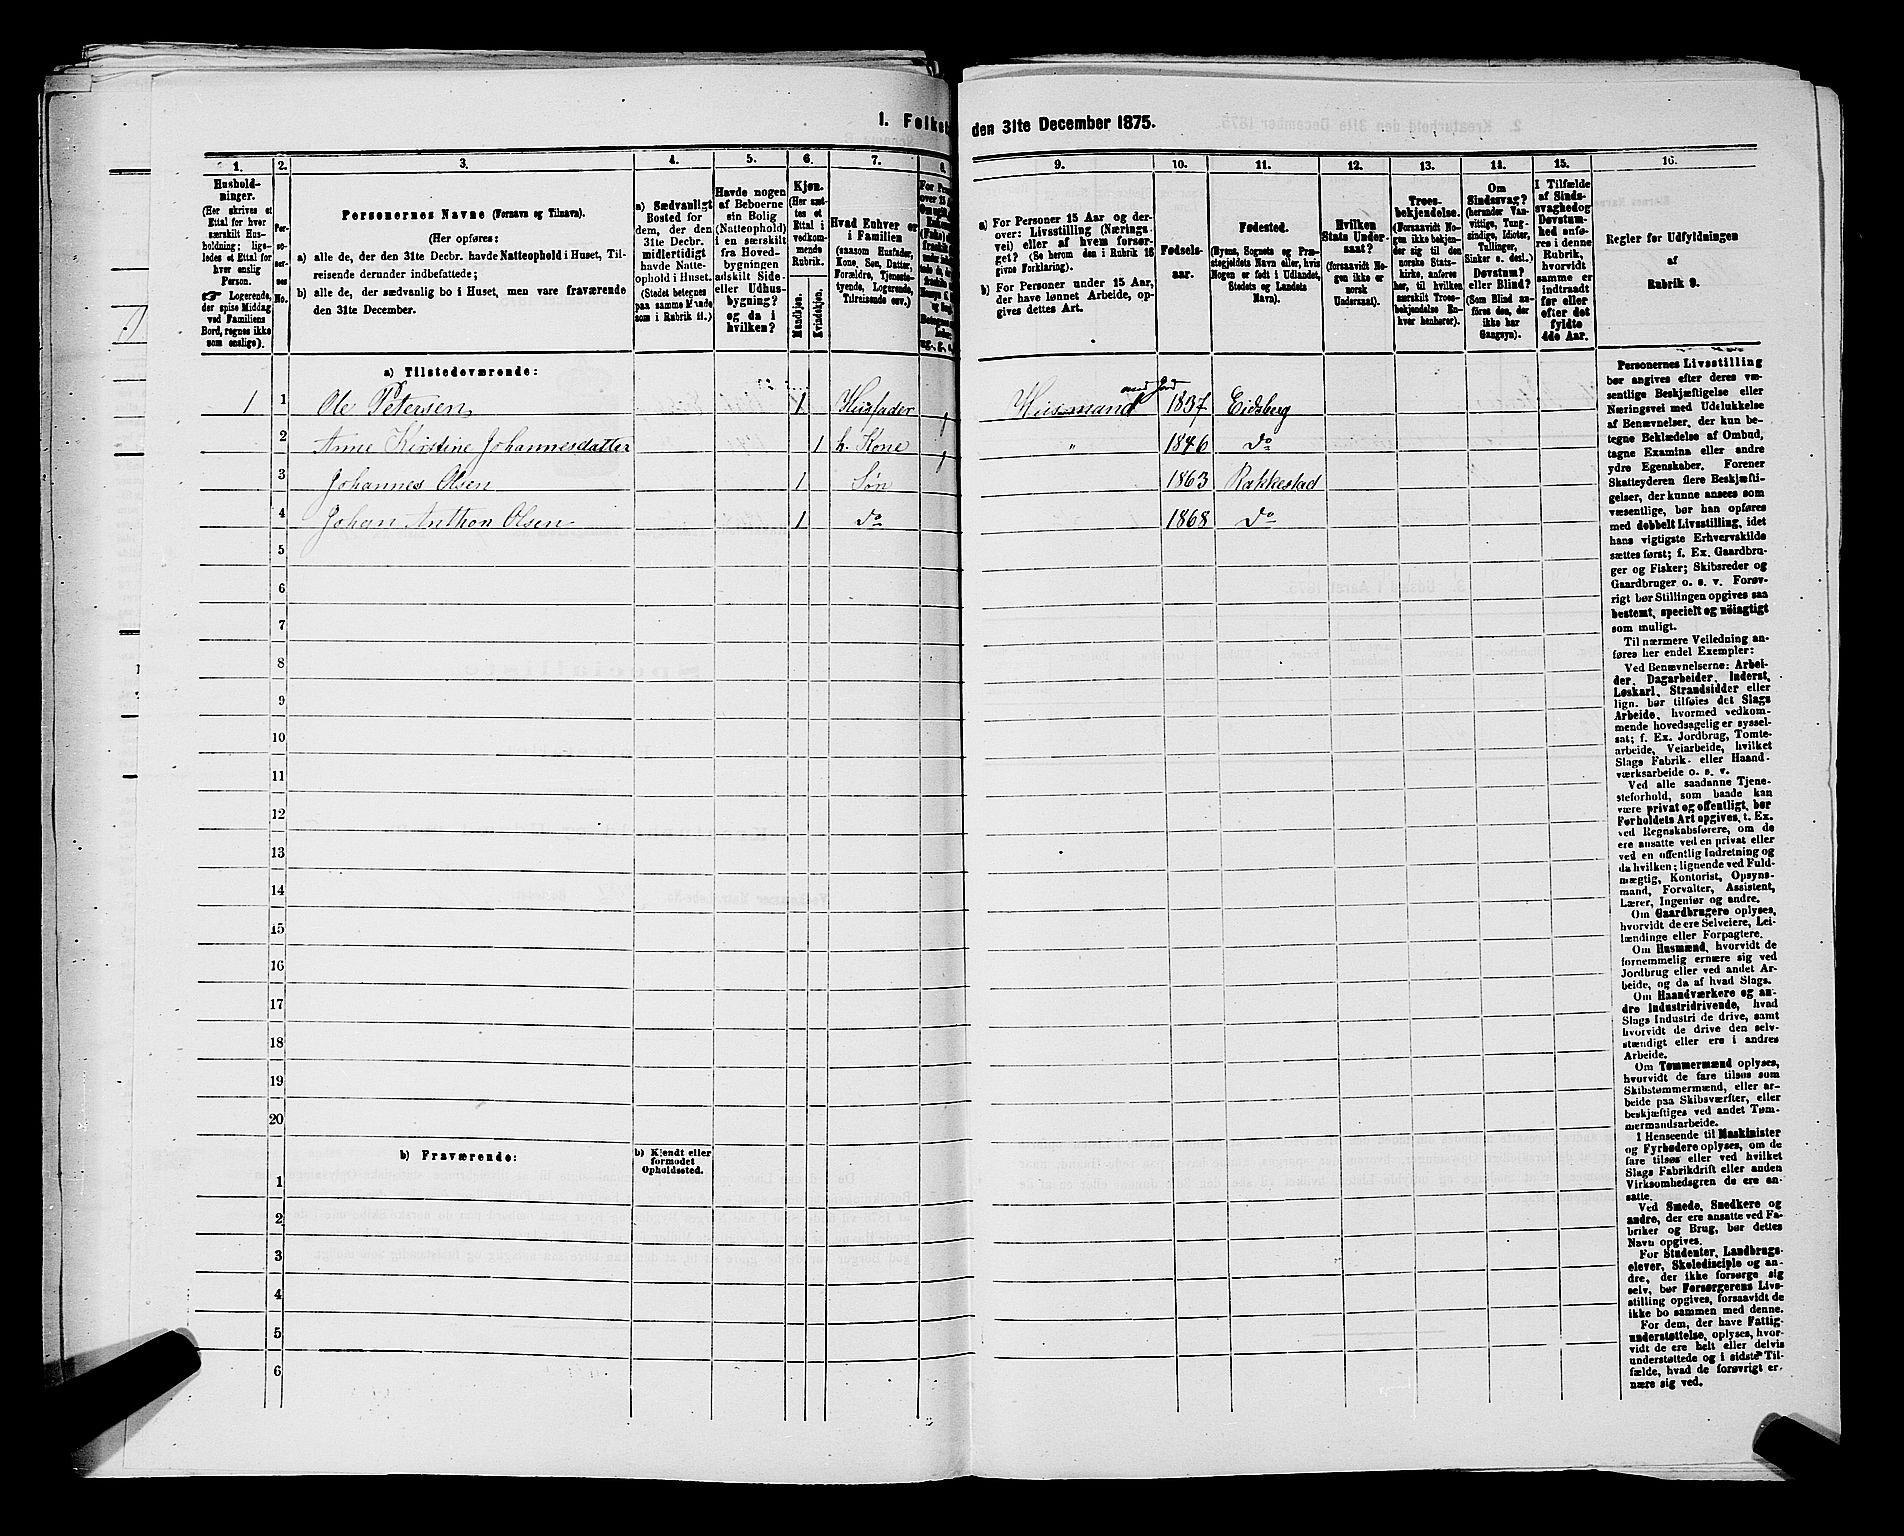 1. Folket
den 31te December 1875.
1. 2. 3. 4. 5. 6. 7. 8. 9. 10. 11. 12. 13. 14. 15. 16.
Hushold-
ninger.
(Her skrives et
Ettal for hver
særskilt Hus-
holdning; lige-
ledes et Ettal for
hver enslig
Person.
☞ Logerende,
der spise Middag
ved Familiens
Bord, regnes ikke
som enslige).
Per-
so-
ner-
nes
No.
Personernes Navne (Fornavn og Tilnavn).
(Her opføres:
a) alle de, der den 31te Decbr. havde Natteophold i Huset, Til-
reisende derunder indbefattede;
b) alle de, der sædvanlig bo i Huset, men vare fraværende
den 31te December.
a) Sædvanligt
Bosted for
dem, der den
31te Decbr.
midlertidigt
havde Natte-
ophold i Huset.
(Stedet betegnes
paa samme Maade
som i Rubrik 11.)
Havde nogen
af Beboerne
sin Bolig
(Natteophold)
i en særskilt
fra Hoved-
bygningen
adskilt Side-
eller Udhus-
bygning?
og da i
hvilken?
Kjøn.
(Her sæt-
tes et
Ettal i
vedkom-
mende
Rubrik.
Mandkjøn.
Kvindekjøn.
Hvad Enhver er
i Familien
(saasom Husfader,
Kone, Søn, Datter,
Forældre, Tjeneste-
tyende, Logerende,
Tilreisende osv.)
a) For Personer 15 Aar og der-
over: Livsstilling (Nærings-
vei) eller af hvem forsør-
get? (Se herom den i Rubrik 16
givne Forklaring).
b) For Personer under 15 Aar,
der have lønnet Arbeide, op-
gives dettes Art.
Fødsels-
aar.
Fødested.
(Byens, Sognets og Præ-
stegjeldets Navn eller, hvis
Nogen er født i Udlandet,
Stedets og Landets
Navn).
Hvilken
Stats Under-
saat?
(forsaavidt No-
gen ikke er
norsk
Undersaat).
Troes-
bekjendelse.
(Forsaavidt No-
gen ikke bekjen-
der sig til den
norske Stats-
kirke, anføres
her, til hvilken
særskilt Troes-
bekjendelse En-
hver henhører).
Om
Sindssvag?
(herunder Van-
vittige, Tung-
sindige, Idioter,
Tullinger,
Sinker o. desl.)
Døvstum?
eller Blind?
(Som Blind an-
føres den, der
ikke har
Gangsyn).
I Tilfælde
af Sinds-
svaghed og
Døvstum-
hed anfø-
res i denne
Rubrik,
hvorvidt
samme er
indtraadt
før eller
efter det
fyldte
4de Aar.
Regler for Udfyldningen
af
Rubrik 9.
a) Tilstedeværende:
1 1 Ole Petersen 1 Husfader Husmand med Jord 1837 Eidsberg
2 Anne Kirstine Johannesdatter 1 h. Kone " 1846 do
3 Johannes Olsen 1 Søn 1863 Rakkestad
4 Johan Anthon Olsen 1 do 1868 do
5
6
7
8
9
10
11
12
13
14
15
16
17
18
19
20
b) Fraværende:
b) Kjendt eller
formodet
Opholdssted.
1
2
3
4
5
6
Personernes Livsstilling
bør angives efter deres væ-
sentlige Beskjæftigelse eller
Næringsvei med Udelukkelse
af Benævnelser, der kun be-
tegne Beklædelse af Ombud,
tagne Examina eller andre
ydre Egenskaber. Forener
Skatteyderen flere Beskjæfti-
gelser, der kunne ansees som
væsentlige, bør han opføres
med dobbelt Livsstilling, idet
hans vigtigste Erhvervskilde
sættes først; f. Ex. Gaardbru-
ger og Fisker; Skibsreder og
Gaardbruger o. s. v. Forøv-
rigt bør Stillingen opgives saa
bestemt, specielt og nöiagtigt
som muligt.
Til nærmere Veiledning an-
føres her endel Exempler:
Ved Benævnelserne: Arbei-
der, Dagarbeider, Inderst,
Løskarl, Strandsidder eller
lign. bør tilføies det Slags
Arbeide, hvormed vedkom-
mende hovedsagelig er syssel-
sat; f. Ex. Jordbrug, Tomte-
arbeide, Veiarbeide, hvilket
Slags Fabrik- eller Haand-
værksarbeide o. s. v.
Ved alle saadanne Tjene-
steforhold, som baade kan
være privat og offentligt, bør
Forholdets Art opgives, t. Ex.
ved Regnskabsførere, om de
ere ansatte ved en privat eller
ved en offentlig Indretning og
da hvilken; lignende ved Fuld-
mægtig, Kontorist, Opsyns-
mand, Forvalter, Assistent,
Lærer, Ingeniør og andre.
Om Gaardbrugere oplyses,
hvorvidt de ere Selveiere, Lei-
lændinge eller Forpagtere.
Om Husmænd, hvorvidt de
fornemmelig ernære sig ved
Jordbrug eller ved andet Ar-
beide, og da af hvad Slags.
Om Haandværkere og an-
dre Industridrivende, hvad
Slags Industri de drive, samt
hvorvidt de drive den selv-
stændigt eller ere i andres
Arbeide.
Om Tømmermænd oplyses,
hvorvidt de fare tilsøs som
Skibstømmermænd, eller ar-
beide paa Skibsværfter, eller
beskjæftiges ved andet Tøm-
mermandsarbeide.
I Henseende til Maskinister
og Fyrbødere oplyses, om de
fare tilsøs eller ved hvilket
Slags Fabrikdrift eller anden
Virksomhedsgren de ere an-
satte.
Ved Smede, Snedkere og
andre, der ere ansatte ved Fa-
briker og Brug, bør dettes
Navn opgives.
For Studenter, Landbrugs-
elever, Skoledisciple og an-
dre, der ikke forsørge sig
selv, bør Forsørgerens Livs-
stilling opgives, forsaavidt de
ikke bo sammen med denne.
For dem, der have Fattig-
understøttelse, oplyses, hvor-
vidt de ere helt eller delvis
understøttede og i sidste Til-
fælde, hvad de forøvrigt er-
nære sig ved.